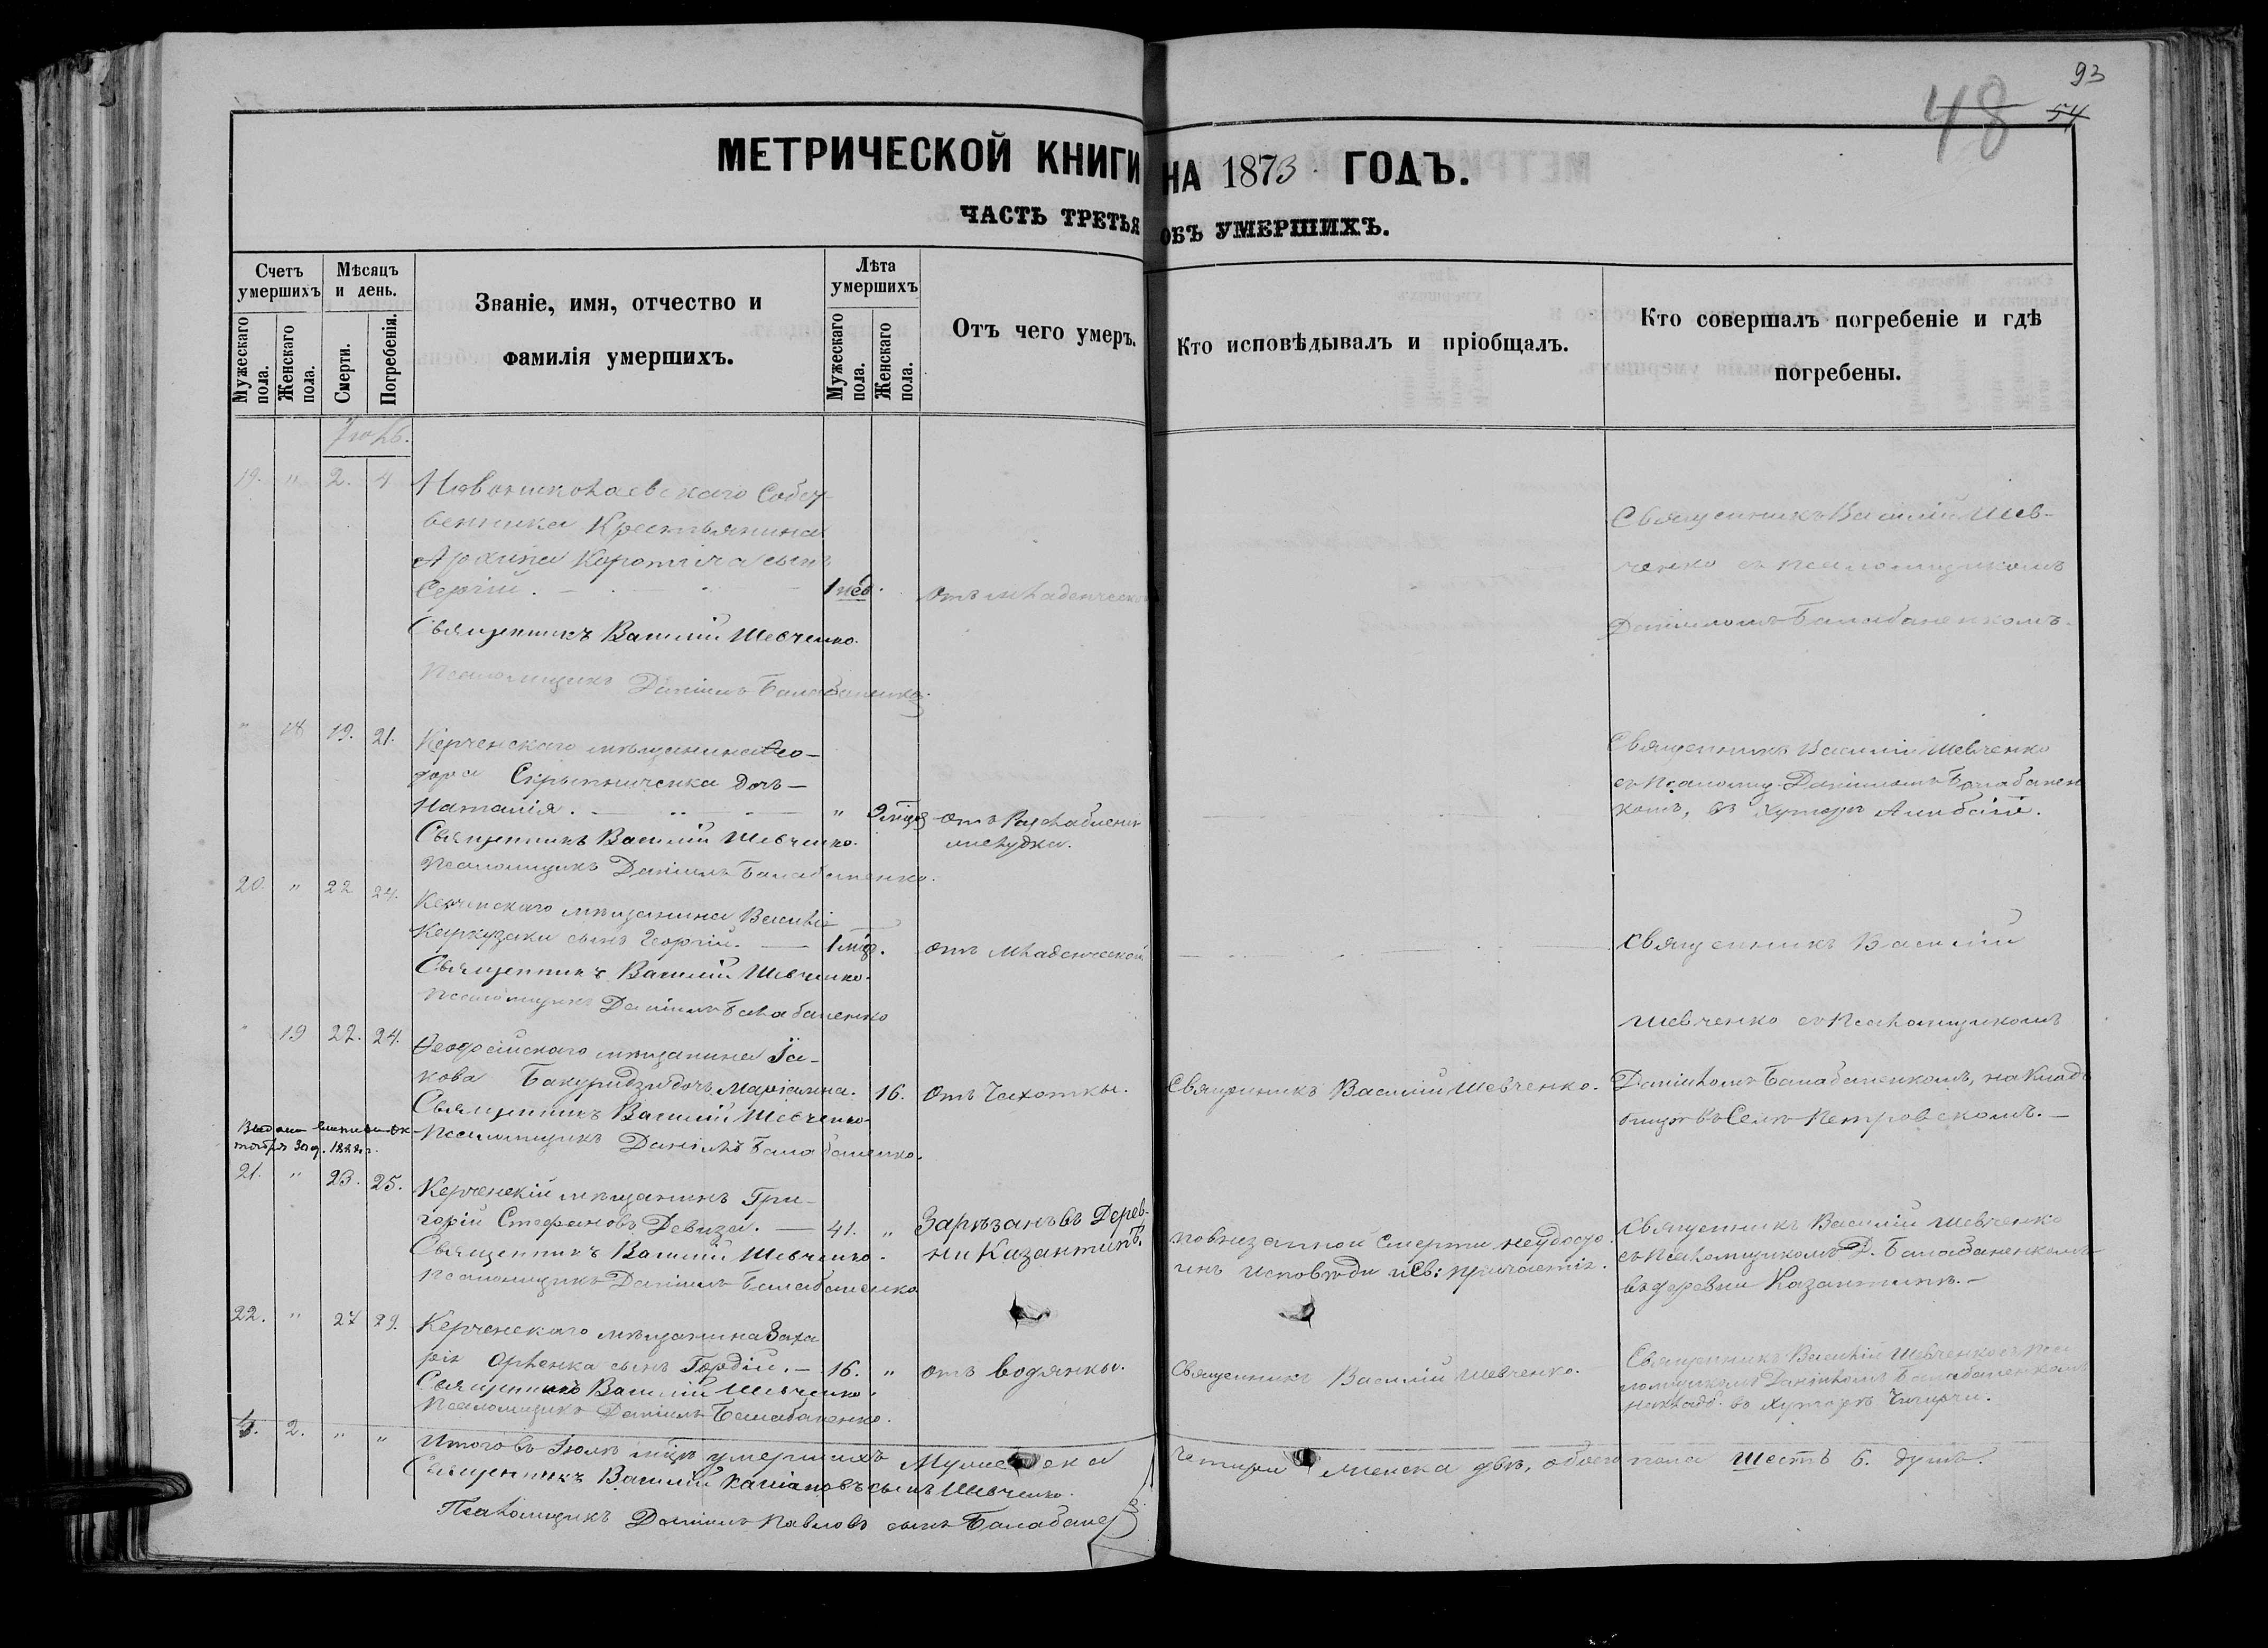 93
54
48
МЕТРИЧЕСКОЙ КНИГИ НА 1873 ГОДЪ.
ЧАСТЬ ТРЕТЬЯ ОБЪ УМЕРШИХЪ.
Счетъ умершихъ
Мужескаго пола.
Женскаго пола.
Мѣсяцъ и день.
Смерти.
Погребенія.
Званіе, имя, отчество и фамилія умершихъ.
Лѣта умершихъ
Мужескаго пола.
Женскаго пола.
Отъ чего умеръ.
Кто исповѣдывалъ и пріобщалъ.
Кто совершалъ погребеніе и гдѣ погребены.
Іюль.
19. " 2. 4 Новониколаевскаго Собст-
венника Крестьянина
Архипа Коротича сынъ
Сергій. 1 нед. отъ младенческой
Священникъ Василій Шев-
ченко съ псаломщикомъ
Даніиломъ Балабаненкомъ.
Священникъ Василій Шевченко.
Псаломщикъ Даніилъ Балабаненко.
" 18 19. 21. Керченскаго мѣщанина Ѳео-
дора Скрыпниченка дочь
Наталія. " 2 мѣц отъ Разслабленія
желудка.
Священникъ Василій Шевченко
съ Псаломщ. Даніиломъ Балабанен
комъ, въ хуторѣ
Священникъ Василій Шевченко.
Псаломщикъ Даніилъ Балабаненко.
20. " 22 24. Керченскаго мѣщанина Василія
сынъ Георгій. 1 мѣц. отъ младенческой
Священникъ Василій Шевченко.
Псаломщикъ Даніилъ Балабаненко
Священникъ Василій
Шевченко съ Псаломщикомъ
" 19 22. 24. Ѳеодосійскаго мѣщанина Іа-
кова дочь Маріамна. 16. отъ Чахотки.
Священникъ Василій Шевченко.
Даніиломъ Балабаненкомъ, на Клад
бищѣ въ Селѣ Петровскомъ.
Священникъ Василій Шевченко
Псаломщикъ Даніилъ Балабаненко.
21. " 23. 25. Керченскій мѣщанинъ Гри-
горій Стефановъ Девиза. 41. " Зарѣзанъ въ Дерев-
ни Казантипъ.
По внезапной Смерти неудосто
инъ Исповѣди и Св: Причастія.
Священникъ Василій Шевченко
съ Псаломщикомъ Д. Балабаненкомъ
въ деревни Казантипъ.
Священникъ Василій Шевченко.
Псаломщикъ Даніилъ Балабаненко
22. " 27 29. Керченскаго мѣщанина Заха
рія Орленка сынъ Гордій. 16. " отъ водянки.
Священникъ Василій Шевченко.
Священникъ Василій Шевченко съ Пса
ломщикомъ Даніиломъ Балабаненкомъ
на кладб. въ хуторѣ
Священникъ Василій Шевченко.
Псаломщикъ Даніилъ Балабаненко.
4. 2. " " Итого въ Іюлѣ мцѣ умершихъ Мужеска четыри Женска двѣ, обоего пола шесть 6. душъ.
Священникъ Василій сынъ Шевченко.
Псаломщикъ Даніилъ Павловъ сынъ